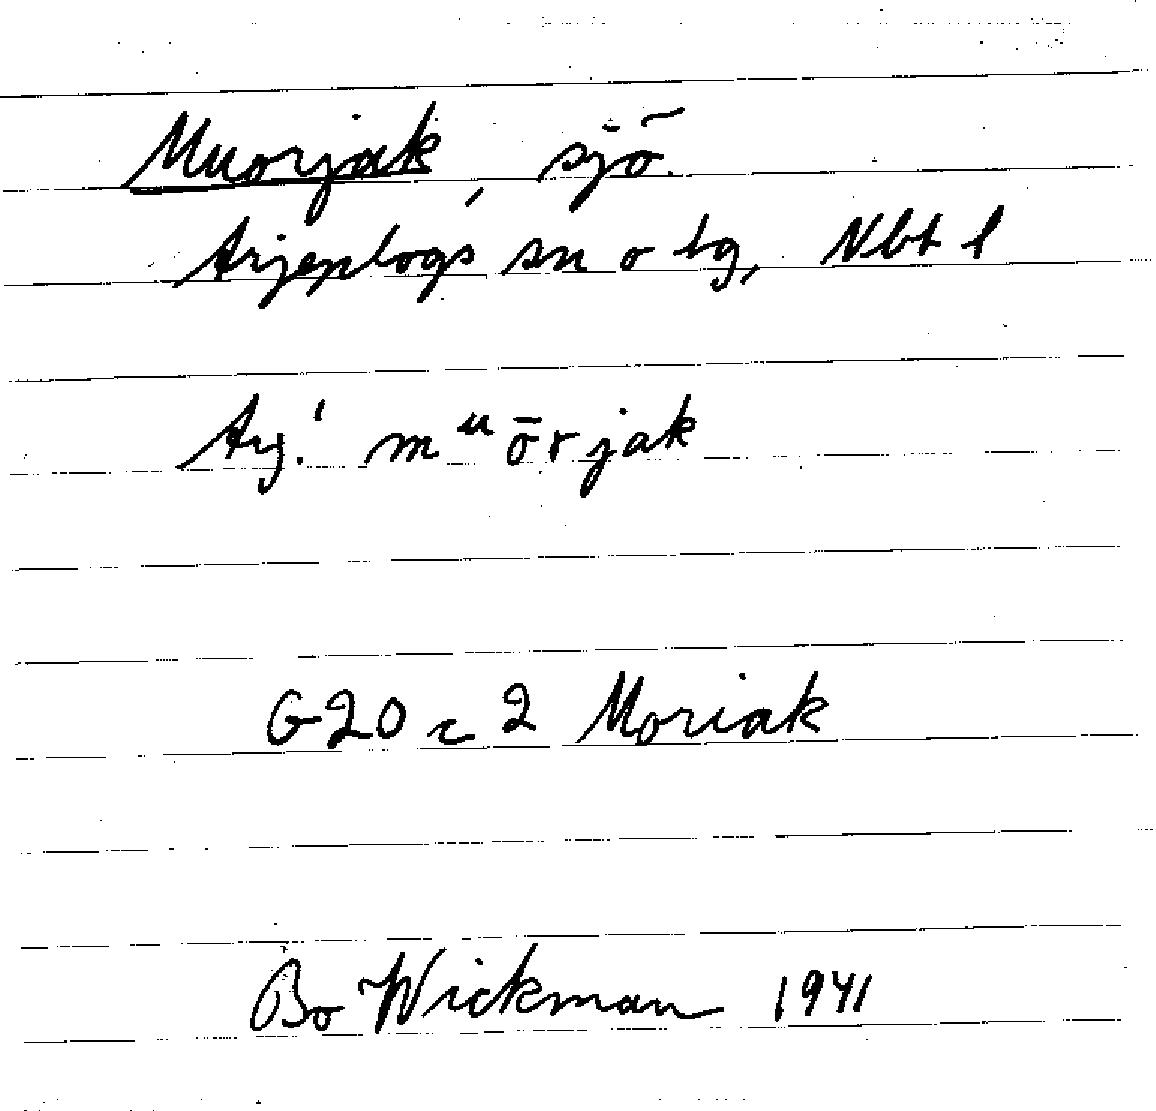 Muorjak, sjö.
Arjeplogs sn o tg, Nbt l
Arj.! mᵘōrjak
G20 c 2 Moriak
Bo Wickman 1941